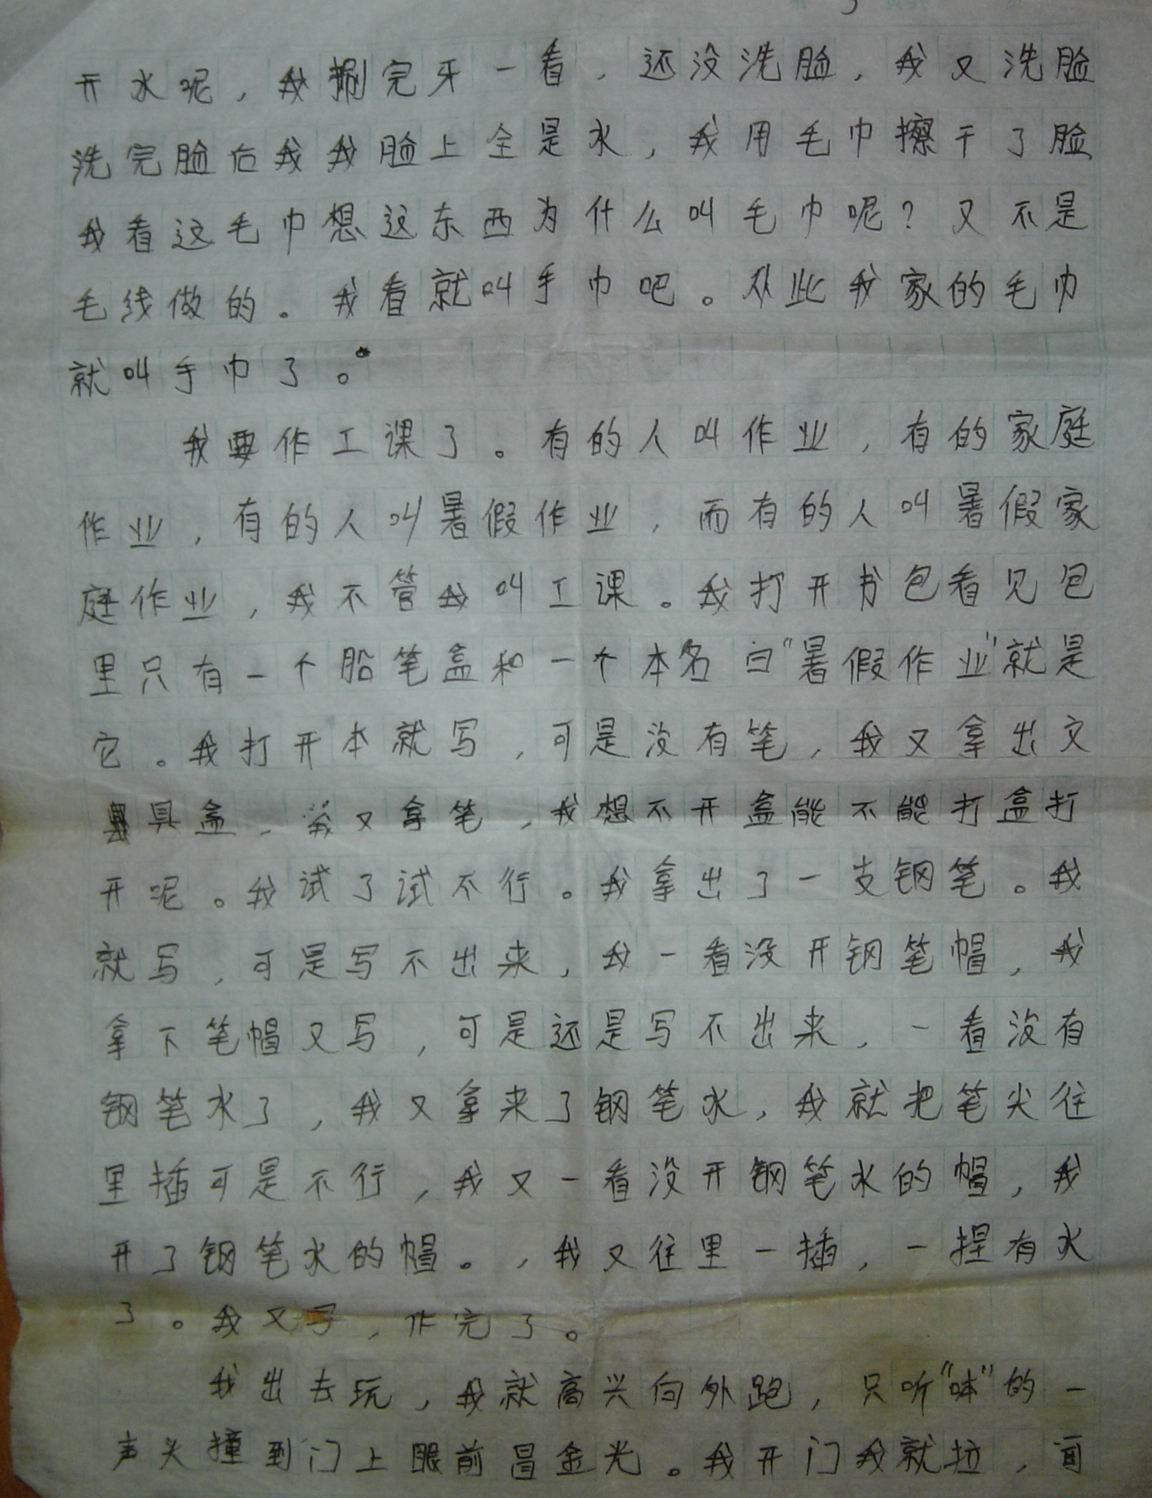 开水呢，我刷完牙一看，还没洗脸，我又洗脸
洗完脸后我我脸上全是水，我用毛巾擦干了脸
我看这毛巾想这东西为什么叫毛巾呢？又不是
毛线做的。我看就叫手巾吧。从此我家的毛巾
就叫手巾了。
我要作工课了。有的人叫作业，有的家庭
作业，有的人叫暑假作业，而有的人叫暑假家
庭作业，我不管我叫工课。我打开书包看见包
里只有一个船笔盒和一个本名曰“暑假作业”就是
它。我打开本就写，可是没有笔，我又拿出文
具盒，我又拿笔，我想不开盒能不能打盒打
开呢。我试了试不行。我拿出了一支钢笔。我
就写，可是写不出来，我一看没开钢笔帽，我
拿下笔帽又写，可是还是写不出来，一看没有
钢笔水了，我又拿来了钢笔水，我就把笔尖往
里插可是不行，我又一看没开钢笔水的帽，我
开了钢笔水的帽。，我又往里一插，一捏有水
了。我又写，作完了。
我出去玩，我就高兴向外跑，只听“咔”的一
声头撞到门上眼前冒金光。我开门我就拉，面